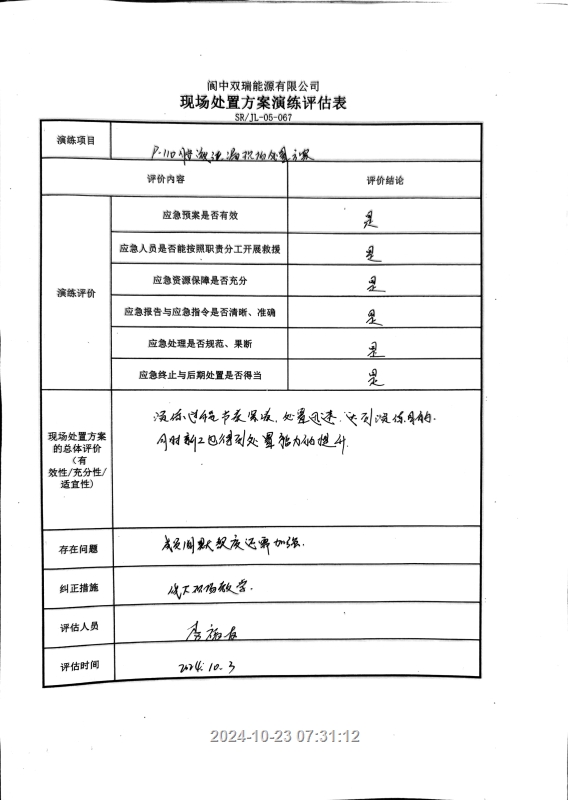 阆中双瑞能源有限公司
现场处置方案演练评估表
SR/JL-05-067
演练项目
P-110 泄漏现场处置方案
评价内容 评价结论
演练评价
应急预案是否有效 是
应急人员是否能按照职责分工开展救援 是
应急资源保障是否充分 是
应急报告与应急指令是否清晰、准确 是
应急处理是否规范、果断 是
应急终止与后期处置是否得当 是
现场处置方案
的总体评价
（有
效性/充分性/
适宜性)
演练过程节奏紧凑，处置迅速，达到演练目的.
同时新工也得到处置能力的提升.
存在问题 成员间默契度还需加强.
纠正措施 线下现场教学.
评估人员 李
评估时间 2024.10.3
2024-10-23 07:31:12